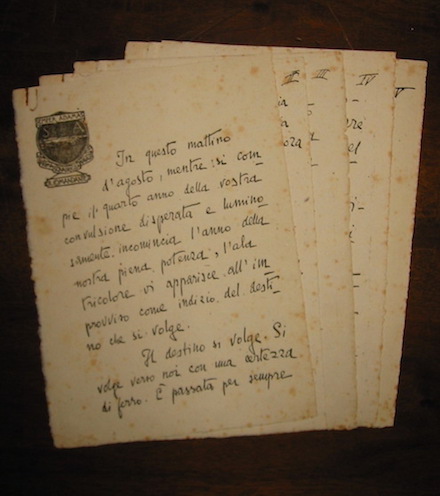 S. A.
In questo mattino
d'agosto, mentre si com
pie il quarto anno della vostra
convulsione disperata e lumino
samente incomincia l'anno della
nostra piena potenza, l'ala
tricolore vi apparisce all'im
provviso come indizio del desti
no che si volge.
Il destino si volge. Si
volge verso noi con una certezza
di ferro. È passata per sempre
II
ora
III
IV
el
V